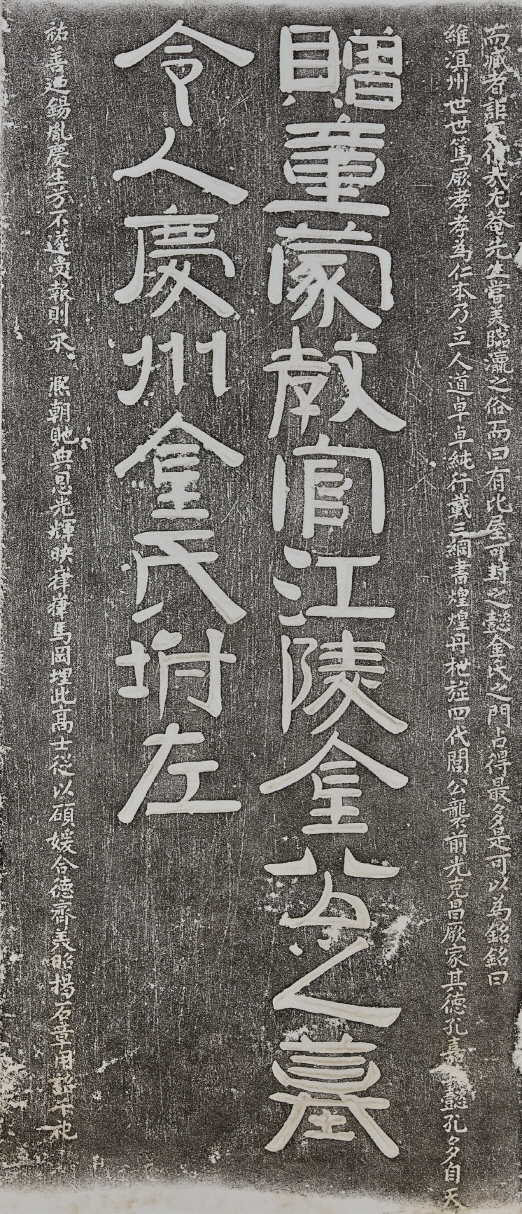 而臧者詎不信哉尤菴先生嘗美臨瀛之俗而曰有比屋可封之懿金氏之門占得最多是可以為銘銘曰
維溟州世世篤厥孝孝為仁本乃立人道卓卓純行載三綱書煌煌丹栬旌四代閭公襲前光克昌厥家其德孔嘉懿孔多自天
贈童蒙教官江陵金公之墓
令人慶州金氏祔左
祐善迺錫胤慶生芳不遂賁報則永 熙朝貤典恩光輝映嵂嵂馬岡埋此高士從以碩媛合德齊美昭揭石章用詔千祀